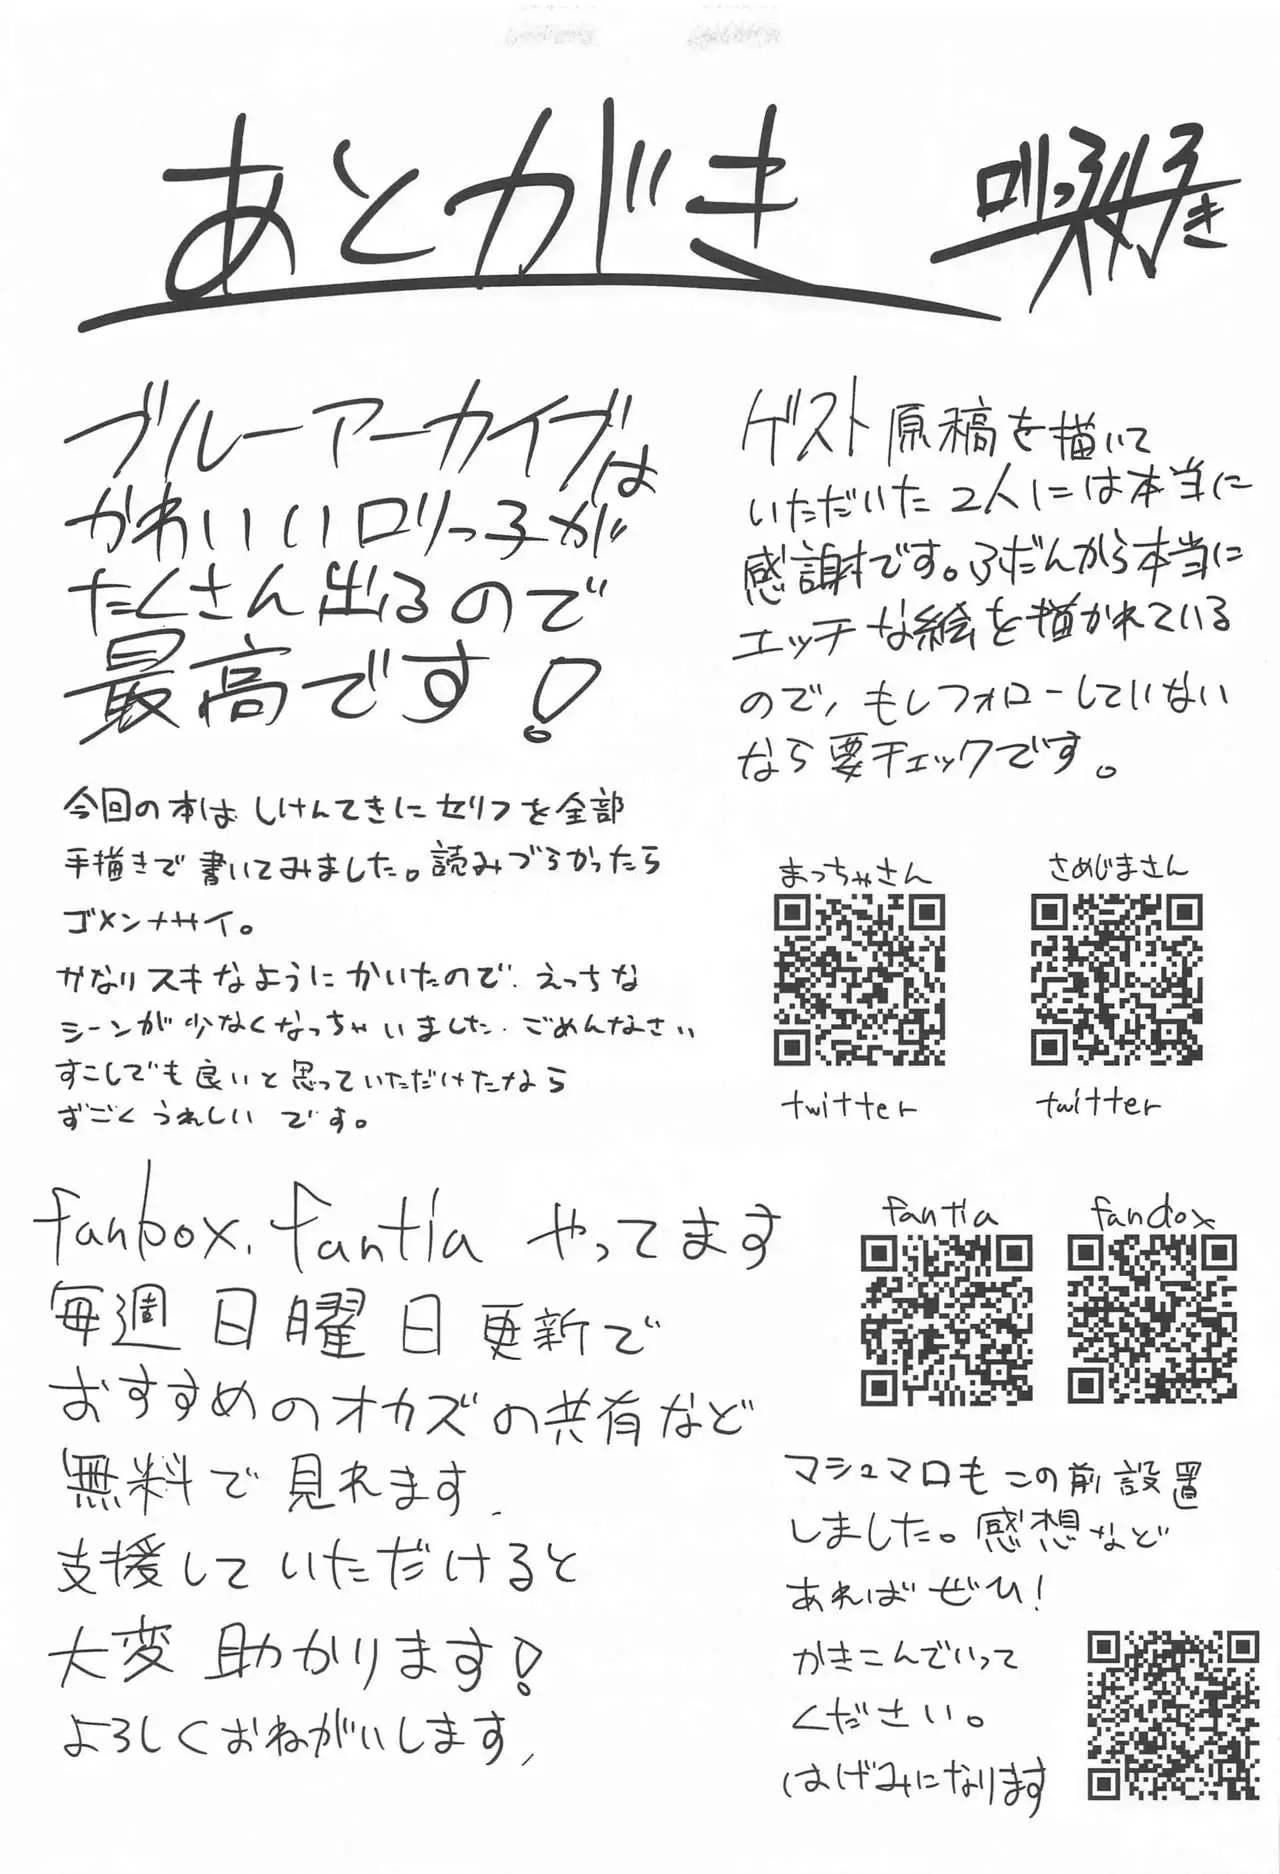 あとがき
ブルーアーカイブは
かわいいロリっ子が
たくさん出るので
最高です!
今回の本は しけんてきに セリフを全部
手描きで 書いてみました。読みづらかったら
ゴメンナサイ。
かなりスキなように かいたので えっちな
シーンが少なくなっちゃいました ごめんなさい
すこしでも良いと思っていただけたなら
すごく うれしい です。
ゲスト原稿を描いて
いただいた2人には本当に
感謝です。ふだんから本当に
エッチな絵を描かれている
ので、もしフォローしていない
なら要チェックです。
まっちゃさん
さめじまさん
twitter
twitter
fanbox. fantia やってます
毎週日曜日更新で
おすすめのオカズの共有など
無料で見れます、
支援して いただけると
大変 助かります!
よろしくおねがいします、
fantia
マシュマロもこの前設置
しました。感想など
あれば ぜひ!
かきこんでいって
ください。
はげみになります